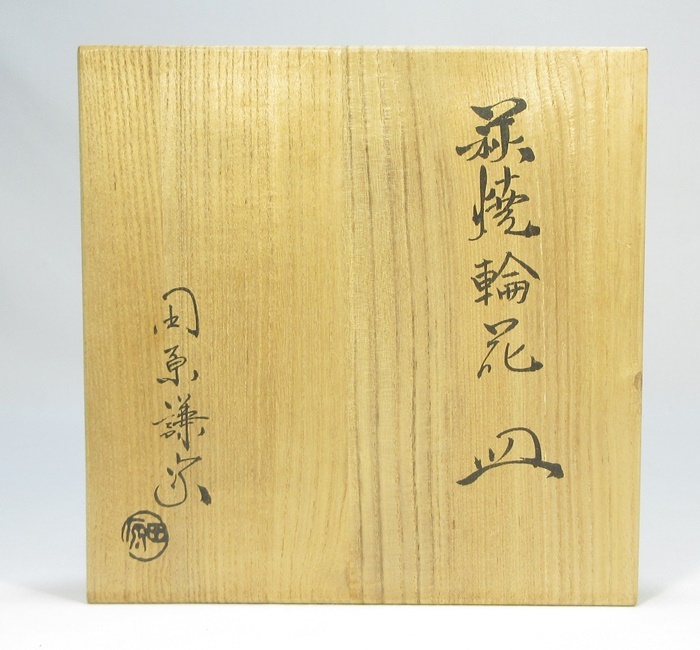 萩焼輪花 皿
田原謙次
田原